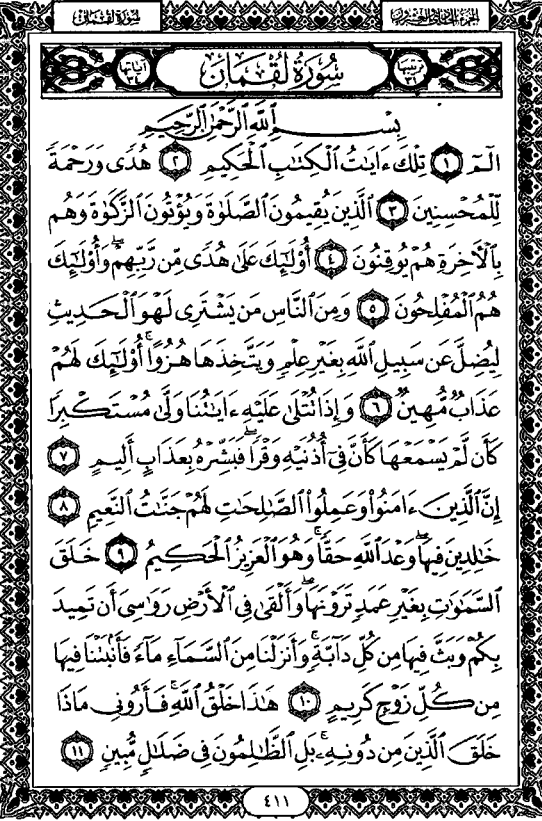 سُورَةُ لُقْمَانَ الجُزْءُ الحَادِي وَالعِشْرُونَ
آيَاتُهَا ٣٤ سُورَةُ لُقْمَانَ تَرْتِيبُهَا ٣١
بِسْمِ ٱللَّهِ ٱلرَّحْمَٰنِ ٱلرَّحِيمِ
الٓمٓ ١ تِلْكَ ءَايَٰتُ ٱلْكِتَٰبِ ٱلْحَكِيمِ ٢ هُدًى وَرَحْمَةً
لِّلْمُحْسِنِينَ ٣ ٱلَّذِينَ يُقِيمُونَ ٱلصَّلَوٰةَ وَيُؤْتُونَ ٱلزَّكَوٰةَ وَهُم
بِٱلْءَاخِرَةِ هُمْ يُوقِنُونَ ٤ أُو۟لَٰٓئِكَ عَلَىٰ هُدًى مِّن رَّبِّهِمْ ۖ وَأُو۟لَٰٓئِكَ
هُمُ ٱلْمُفْلِحُونَ ٥ وَمِنَ ٱلنَّاسِ مَن يَشْتَرِى لَهْوَ ٱلْحَدِيثِ
لِيُضِلَّ عَن سَبِيلِ ٱللَّهِ بِغَيْرِ عِلْمٍ وَيَتَّخِذَهَا هُزُوًا ۚ أُو۟لَٰٓئِكَ لَهُمْ
عَذَابٌ مُّهِينٌ ٦ وَإِذَا تُتْلَىٰ عَلَيْهِ ءَايَٰتُنَا وَلَّىٰ مُسْتَكْبِرًا
كَأَن لَّمْ يَسْمَعْهَا كَأَنَّ فِىٓ أُذُنَيْهِ وَقْرًا ۖ فَبَشِّرْهُ بِعَذَابٍ أَلِيمٍ ٧
إِنَّ ٱلَّذِينَ ءَامَنُوا۟ وَعَمِلُوا۟ ٱلصَّٰلِحَٰتِ لَهُمْ جَنَّٰتُ ٱلنَّعِيمِ ٨
خَٰلِدِينَ فِيهَا ۖ وَعْدَ ٱللَّهِ حَقًّا ۚ وَهُوَ ٱلْعَزِيزُ ٱلْحَكِيمُ ٩ خَلَقَ
ٱلسَّمَٰوَٰتِ بِغَيْرِ عَمَدٍ تَرَوْنَهَا ۖ وَأَلْقَىٰ فِى ٱلْأَرْضِ رَوَٰسِىَ أَن تَمِيدَ
بِكُمْ وَبَثَّ فِيهَا مِن كُلِّ دَآبَّةٍ ۚ وَأَنزَلْنَا مِنَ ٱلسَّمَآءِ مَآءً فَأَنۢبَتْنَا فِيهَا
مِن كُلِّ زَوْجٍ كَرِيمٍ ١٠ هَٰذَا خَلْقُ ٱللَّهِ فَأَرُونِى مَاذَا
خَلَقَ ٱلَّذِينَ مِن دُونِهِۦ ۚ بَلِ ٱلظَّٰلِمُونَ فِى ضَلَٰلٍ مُّبِينٍ ١١
٤١١